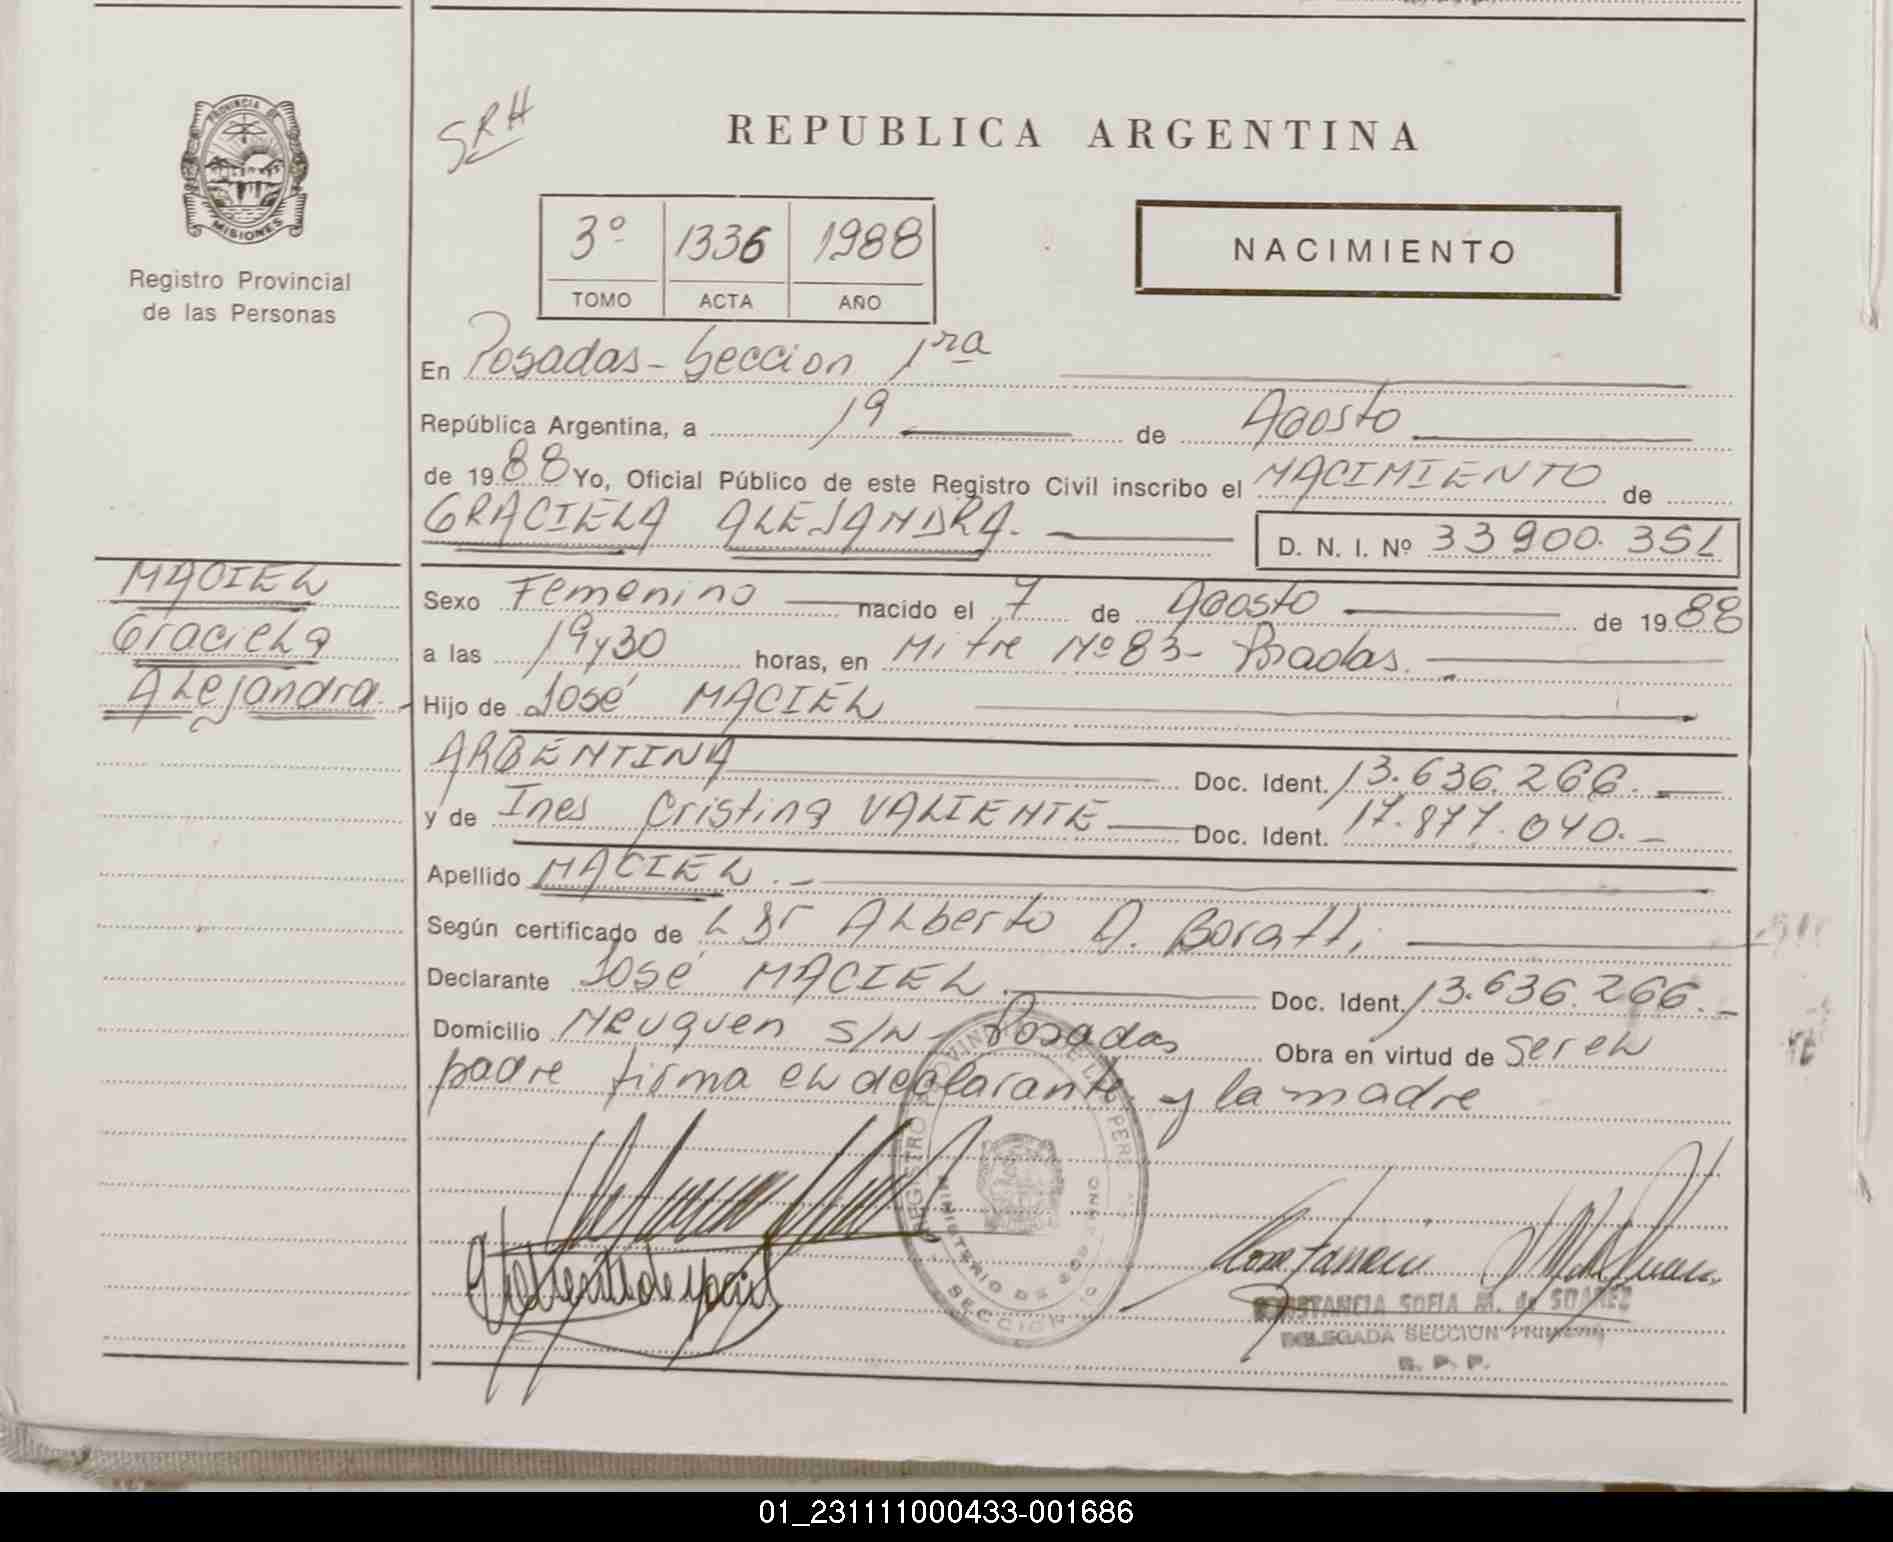 PROVINCIA DE
MISIONES
Registro Provincial
de las Personas
SRH
REPUBLICA ARGENTINA
3º 1336 1988
TOMO ACTA AÑO
NACIMIENTO
En Posadas - Seccion 1ra
República Argentina, a 19 de Agosto
de 1988 Yo, Oficial Público de este Registro Civil inscribo el NACIMIENTO de
GRACIELA ALEJANDRA.
D. N. I. Nº 33900.351
MACIEL
Graciela
Alejandra.-
Sexo Femenino nacido el 7 de Agosto de 1988
a las 19y30 horas, en Mitre Nº 83 - Posadas.
Hijo de José MACIEL
ARGENTINA Doc. Ident. 13.636.266.-
y de Ines Cristina VALIENTE Doc. Ident. 17.877.040.-
Apellido MACIEL.-
Según certificado de L Dr Alberto A. Boratti
Declarante José MACIEL Doc. Ident. 13.636.266.-
Domicilio Neuquen S/N - Posadas Obra en virtud de ser el
padre firma el declarante y la madre
REGISTRO PROVINCIAL DE LAS PER
MINISTERIO DE GOBIERNO
SECCION
CONSTANCIA SOFIA M. de SUAREZ
DELEGADA SECCION PRIMERA
R. P. P.
01_231111000433-001686